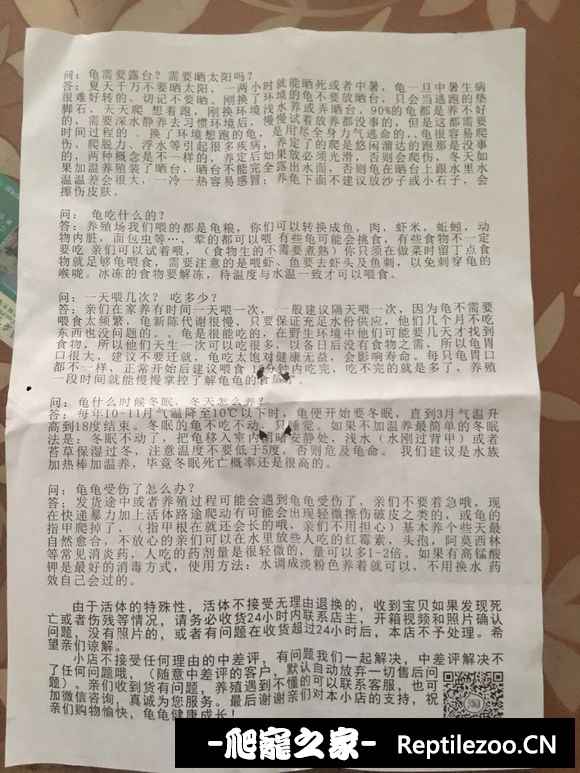 问：龟需要露台？需要晒太阳吗？
答：夏天千万不要晒太阳，一两小时就能晒死或者中暑，龟一旦中暑生病
很难好转的，切记不要晒。刚换了环境的龟不要放晒台，只会当逃跑的垫
脚石，天天爬 想着跑，刚换环境浅水养或弄晒台，90%的龟都是养不好
的，需要深水静养去习惯环境后，慢慢试着放养都没事的，但是这都需要
时间过程的 。换了环境想跑的龟，是用尽全身力气逃命的，龟很容易爬
伤，爬脱力、浮水等引起很多疾病，养定了的爬是悠闲溜达的跑那是没事
的，两种概念是不一样的，养定后如果放必须光滑，否则会爬伤，冬天如
果加温养殖装了晒台，晒台不能完全露出水面，否则龟在晒台上跟水里水
温温差会很大，一冷一热容易感冒；养龟下面不建议放沙子或小石子，会
擦伤皮肤。
问： 龟吃什么的？
答：养殖场我们喂的都是龟粮，你们可以转换成鱼，肉、虾米，蚯蚓，动
物内脏，面包虫等…，荤的都可以喂 有些龟可能会挑食，有些食物不一定
要吃 亲们可以试着喂，（食物生的不需要煮熟）你只须在做菜时留丁点食
物就足够龟喂食，需要注意的是喂虾、鱼要去虾头及鱼刺，以免刺穿龟的
喉咙。冰冻的食物要解冻，待温度与水温一致才可以喂食。
问：一天喂几次？ 吃多少？
答：亲们在家养有时间一天喂一次，一般建议隔天喂一次，因为龟不需要
喂食太频繁，龟新陈代谢很慢，只要保证充足水份供应，他们几个月不吃
东西也没问题的。。龟是很能吃的，在野生环境中他们可能要几天才找到
食物，所以他们天生一次可以吃很多，以备日后没有食物之需，所以龟胃
口很大，建议不要迁就，龟吃太饱对健康无益，会影响寿命。每只龟胃口
都不一样，正常开始后建议喂食10分钟内吃完，吃不完的就是多了，养殖
一段时间就能慢慢掌控了解龟龟的食量。
问：龟什么时候冬眠，冬天怎么养？
答：每年10-11月气温降至10℃以下时，龟便开始要冬眠，直到3月气温升
高到18度结束。冬眠的龟不吃不动，只睡觉。如果不加温养最简单的冬眠
法是：冬眠不动了，把龟移入室内阴暗安静处，浅水（水刚过背甲）或者
苔草保湿过冬，注意温度不要低于5度，否则危及龟命。 我们建议是水族
加热棒加温养，毕竟冬眠死亡概率还是很高的。
问：龟龟受伤了怎么办？
答：发货途中或者养殖过程可能会遇到龟龟受伤了，亲们不要着急哦，现
在快递暴力加上活体路途爬动有可能会出现轻微擦伤破皮之类的，或龟的
指甲爬掉了，（指甲根在就还会长的哦，亲们不用担心）基本养个些天最
自然愈合，不放心的亲们可以在水里放些人吃的红霉素，头孢，阿莫西林
等常见消炎药，人吃的药剂量是很轻微的，量可以多1-2倍。如果有高锰酸
钾是最好的消毒方式，使用方法：水调成淡粉色养着就可以，不用换水 药
效自己会过的。
由于活体的特殊性，活体不接受无理由退换的，收到宝贝如果发现死
亡或者伤残等情况，请务必收货24小时内联系店主，开箱视频和照片确认
问题，没有照片的，或者有问题在收货超过24小时后，本店不予处理。希
望亲们谅解。
小店不接受任何理由的中差评，有问题我们一起解决，中差评解决不
了任何问题哦，（随意中差评的客户，默认自动放弃一切售后问
题）。亲们收到货有问题，养殖遇到不懂的可以联系客服，也可
加微信咨询，真诚为您服务。最后谢谢亲们对本小店的支持，祝
亲们购物愉快，龟龟健康成长！
-爬寵之家-
Reptilezoo.CN